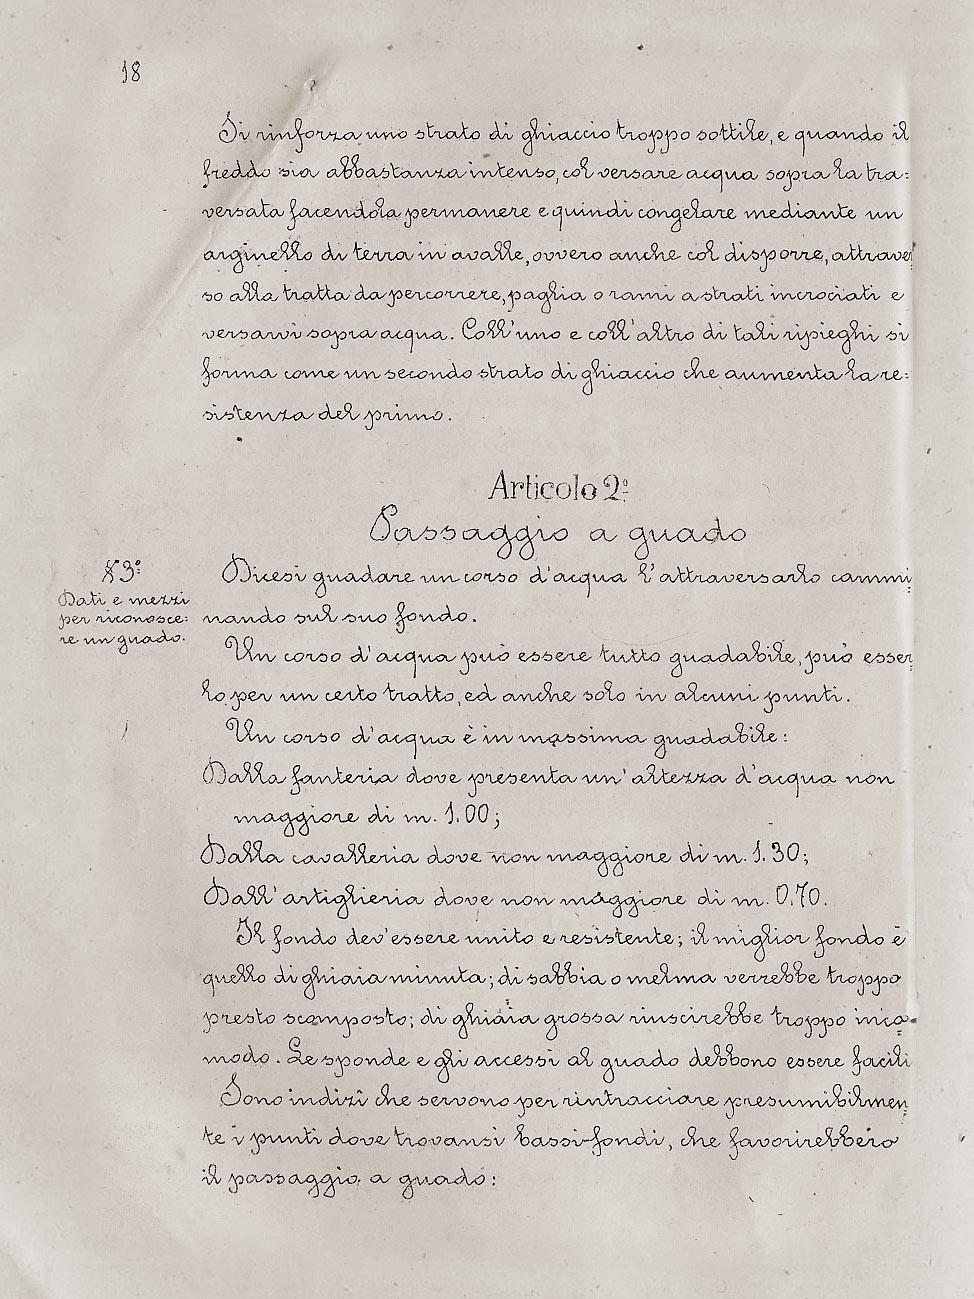 18
Si rinforza uno strato di ghiaccio troppo sottile, e quando il
freddo sia abbastanza intenso, col versare acqua sopra la tra=
versata facendola permanere e quindi congelare mediante un
arginello di terra in avalle, ovvero anche col disporre, attraver=
so alla tratta da percorrere, paglia o rami a strati incrociati e
versarvi sopra acqua. Coll'uno e coll'altro di tali ripieghi si
forma come un secondo strato di ghiaccio che aumenta la re=
sistenza del primo.
Articolo 2º
Passaggio a guado
§ 3º
Dati e mezzi
per riconosce=
re un guado.
Dicesi guadare un corso d'acqua l'attraversarlo cammi=
nando sul suo fondo.
Un corso d'acqua può essere tutto guadabile, può esser=
lo per un certo tratto, ed anche solo in alcuni punti.
Un corso d'acqua è in massima guadabile:
Dalla fanteria dove presenta un'altezza d'acqua non
maggiore di m. 1.00;
Dalla cavalleria dove non maggiore di m. 1.30;
Dall'artiglieria dove non maggiore di m. 0.70.
Il fondo dev'essere unito e resistente; il miglior fondo è
quello di ghiaia minuta; di sabbia o melma verrebbe troppo
presto scomposto; di ghiaia grossa riuscirebbe troppo inco=
modo. Le sponde e gli accessi al guado debbono essere facili
Sono indizî che servono per rintracciare presumibilmen=
te i punti dove trovansi bassi-fondi, che favorirebbero
il passaggio a guado: